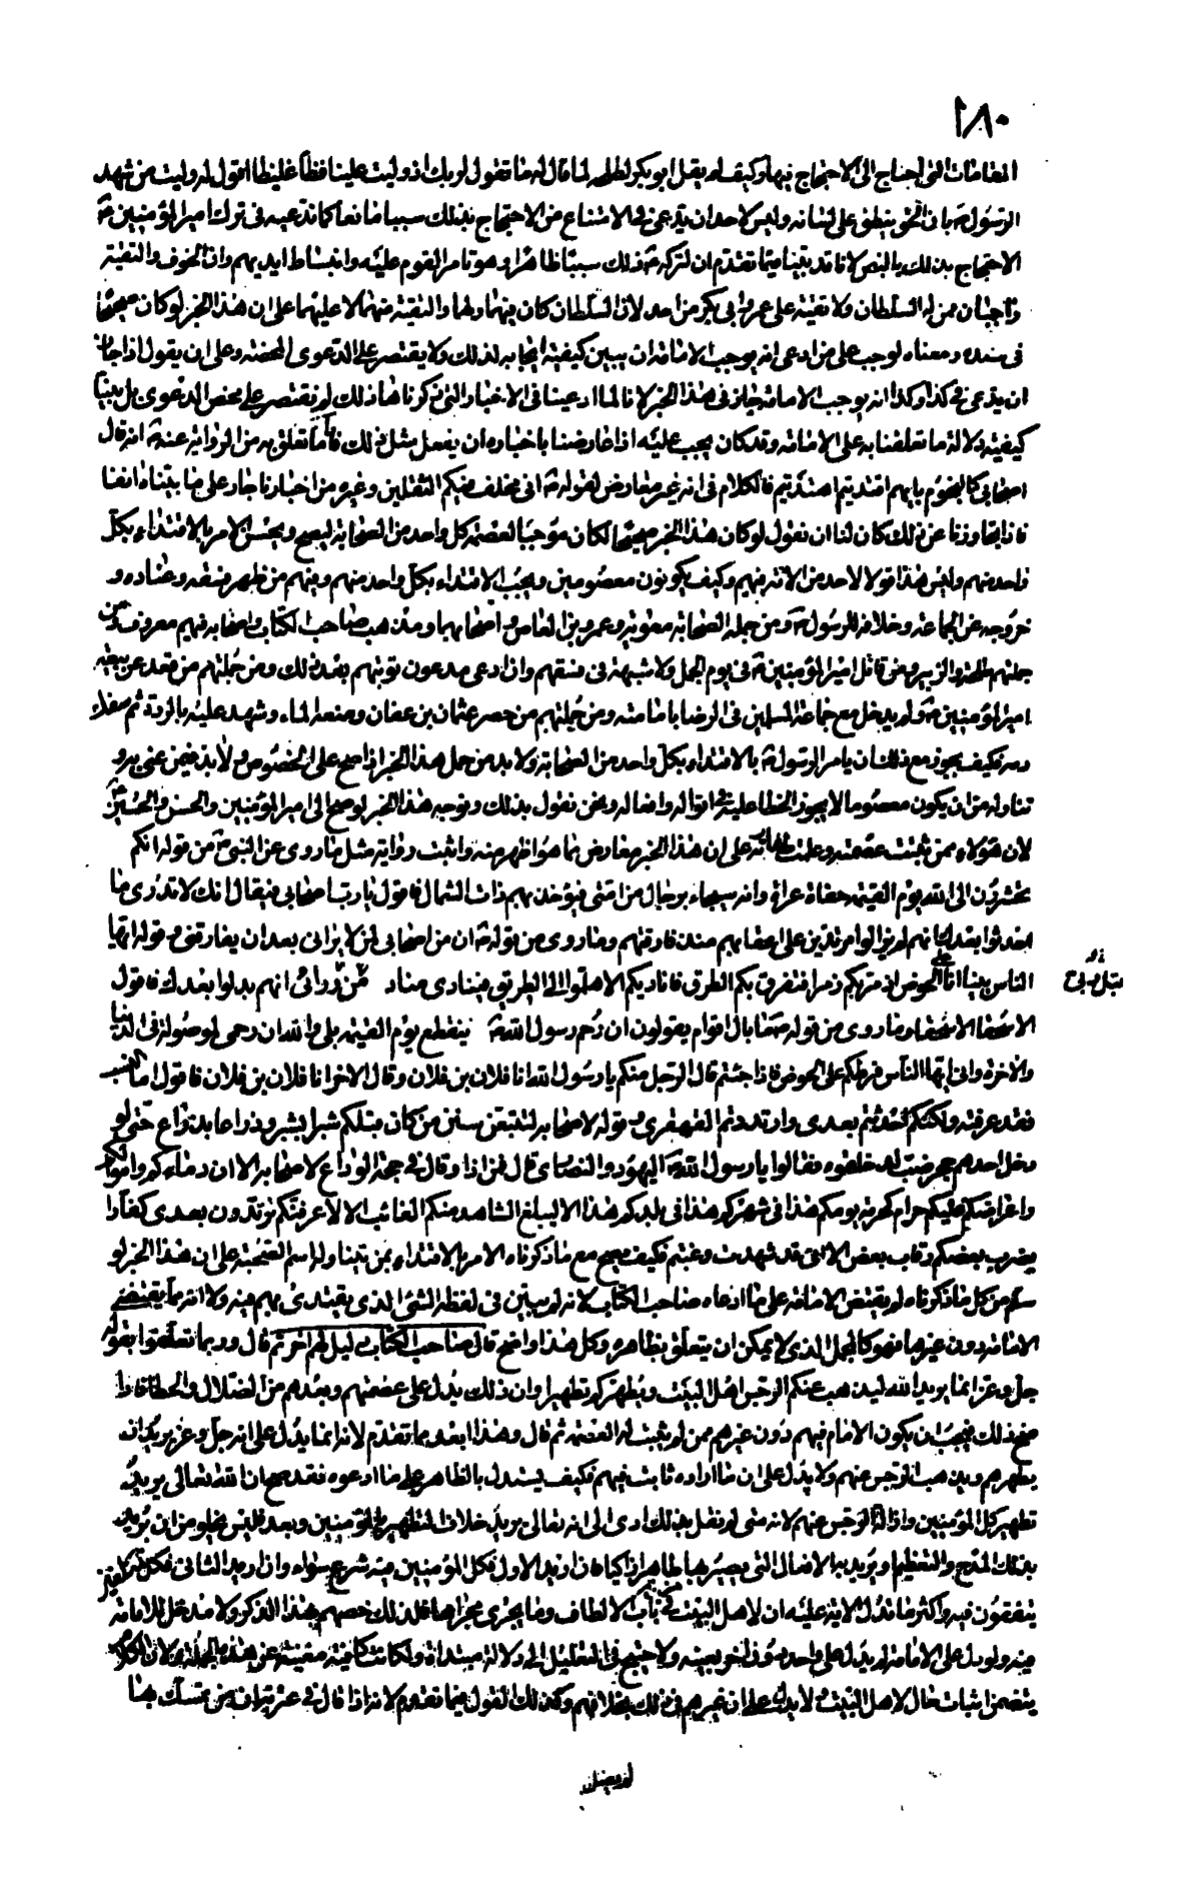 ١٨٠
المقامات التي احتاج الى الاحتجاج فيها وكيف لم يقل ابو بكر لطلحة لما قال له ما تقول لربك اذ وليت علينا فظا غليظا اقول له وليت من شهد
الرسول بان الحق ينطق على لسانه وليس لاحد ان يدعى في الامتناع من الاحتجاج بذلك سببا مانعا كما ندعيه في ترك امير المؤمنين
الاحتجاج بذلك بالنص لانا قد بينا فيما تقدم ان لتركه ذلك سببا ظاهرا وهو تامر القوم عليه وانبساط ايديهم وان الخوف والتقية
واجبان ممن له السلطان ولا تقية على عمر وابى بكر من احد لان السلطان كان فيهما ولهما والتقية منهما لا عليهما على ان هذا الخبر لو كان صحيحا
فى سنده ومعناه لوجب على من ادعى انه يوجب الامامة ان يبين كيفية ايجابه لذلك ولا يقتصر على الدعوى المحضة وعلى ان يقول اذا جاز
ان يدعى في كذا وكذا انه يوجب الامامة جاز فى هذا الخبر لانا لما ادعينا في الاخبار التى ذكرناها ذلك لم نقتصر على محض الدعوى بل بينا
كيفية دلالة ما تعلقنا به على الامامة وقد كان يجب عليه اذا عارضنا باخباره ان يفعل مثل ذلك فاما ما تعلق به من الرواية عنه انه قال
اصحابى كالنجوم بايهم اقتديتم اهتديتم فالكلام فى انه غير معارض لقوله انى مخلف فيكم الثقلين وغيره من اخبارنا جار على ما بيناه انفا
فاذا تجاوزنا عن ذلك كان لنا ان نقول لو كان هذا الخبر صحيحا لكان موجبا لعصمة كل واحد من الصحابة ليصح ويحسن الامر بالاقتداء بكل
واحد منهم وليس هذا قولا لاحد من الامة فيهم وكيف يكونون معصومين ويجب الاقتداء بكل واحد منهم وفيهم من ظهر فسقه وعناده و
خروجه عن الجماعة وخلافه للرسول ومن جملة الصحابة معوية وعمرو بن العاص واصحابهما ومذهب صاحب الكتاب واصحابه فيهم معروف ومن
جملتهم طلحة والزبير ومن قاتل امير المؤمنين فى يوم الجمل ولا شبهة فى فسقهم وان ادعى مدعون توبتهم بعد ذلك ومن جملتهم من قعد عن بيعة
امير المؤمنين ولم يدخل مع جماعة المسلمين فى الرضا بامامته ومن جملتهم من حصر عثمان بن عفان ومنعه الماء وشهد عليه بالردة ثم سفك
دمه فكيف يجوز مع ذلك ان يامر الرسول بالاقتداء بكل واحد من الصحابة ولا بد من حمل هذا الخبر اذا صح على الخصوص ولا بد فيمن عنى به و
تناوله من ان يكون معصوما لا يجوز الخطا عليه في اقواله وافعاله ونحن نقول بذلك ونوجه هذا الخبر لو صح الى امير المؤمنين والحسن والحسين
لان هؤلاء ممن ثبتت عصمته وعلمت طهارته على ان هذا الخبر معارض بما هو اظهر منه واثبت رواية مثل ما روى عن النبى من قوله انكم
تحشرون الى الله يوم القيمة حفاة عراة وانه سيجاء برجال من امتى فيؤخذ بهم ذات الشمال فاقول يا رب اصحابى فيقال انك لا تدرى ما
احدثوا بعدك انهم لم يزالوا مرتدين على اعقابهم منذ فارقتهم وما روى من قوله ان من اصحابى لمن لا يرانى بعد ان يفارقنى وقوله ايها
الناس بينا انا على الحوض اذ مر بكم زمرا فتفرق بكم الطرق فاناديكم الا هلموا الى الطريق فينادى مناد من ورائى انهم بدلوا بعدك فاقول
الا سحقا الا سحقا وما روى من قوله ما بال اقوام يقولون ان رحم رسول الله ينقطع يوم القيمة بلى والله ان رحمى لموصولة فى الدنيا
والاخرة وانى ايها الناس فرطكم على الحوض فاذا جئتم قال الرجل منكم يا رسول الله انا فلان بن فلان وقال الاخر انا فلان بن فلان فاقول اما النسب
فقد عرفته ولكنكم احدثتم بعدى وارتددتم القهقرى وقوله لاصحابه لتتبعن سنن من كان قبلكم شبرا بشبر وذراعا بذراع حتى لو
دخل احدهم جحر ضب لدخلتموه فقالوا يا رسول الله اليهود والنصارى قال فمن اذا وقال في حجة الوداع لاصحابه الا ان دماءكم واموالكم
واعراضكم عليكم حرام كحرمة يومكم هذا فى شهركم هذا فى بلدكم هذا الا ليبلغ الشاهد منكم الغائب الا لاعرفنكم ترتدون بعدى كفارا
يضرب بعضكم رقاب بعض الا انى قد شهدت وغبتم فكيف يصح مع ما ذكرناه الامر بالاقتداء بمن يتناوله اسم الصحبة على ان هذا الخبر لو
سلم من كل ما ذكرناه لم يقتض الامامة على ما ادعاه صاحب الكتاب لانه لم يبين فى لفظه الشئ الذى يقتدى بهم فيه ولا انه مما يقتضى
الامامة دون غيرها فهو كالمجمل الذى لا يمكن ان يتعلق بظاهره وكل هذا واضح قال صاحب الكتاب دليل لهم اخر ثم قال وربما تعلقوا بقوله
جل وعز انما يريد الله ليذهب عنكم الرجس اهل البيت ويطهركم تطهيرا وان ذلك يدل على عصمتهم وبعدهم من الضلال والخطا فاذا
صح ذلك فيجب ان يكون الامام فيهم دون غيرهم ممن لم يثبت له العصمة ثم قال وهذا ابعد مما تقدم لانه انما يدل على انه جل وعز يريد ان
يطهرهم ويذهب الرجس عنهم ولا يدل على ان ما اراده ثابت فيهم فكيف يستدل بالظاهر على ما ادعوه فقد صح ان الله تعالى يريد
تطهير كل المؤمنين وازالة الرجس عنهم لانه متى لم نقل بذلك ادى الى انه تعالى يريد خلاف التطهير بالمؤمنين وبعد فليس يخلو من ان يريد
بذلك المدح والتعظيم او يريد بها الافعال التى يصير بها طاهرا زاكيا فان اريد الاول فكل المؤمنين فيه شرع سواء وان اريد الثانى فكل المكلفين
يتفقون فيه واكثر ما تدل الاية عليه ان لاهل البيت في باب الالطاف وما يجرى مجراها فلذلك خصهم بهذا الذكر ولا مدخل للامامة
فيه ولو دل على الامامة لم يدل على واحد دون اخر بعينه ولاحتيج في التعليل الى دلالة مبتداة ولكانت كافية مغنية عن هذه الجملة لان الكلام
يتضمن اثبات حال لاهل البيت ولا يدل على ان غيرهم فى ذلك بخلافهم وكذلك القول فيما تقدم لانه اذا قال في عترته ان من تمسك بها
لم يضل